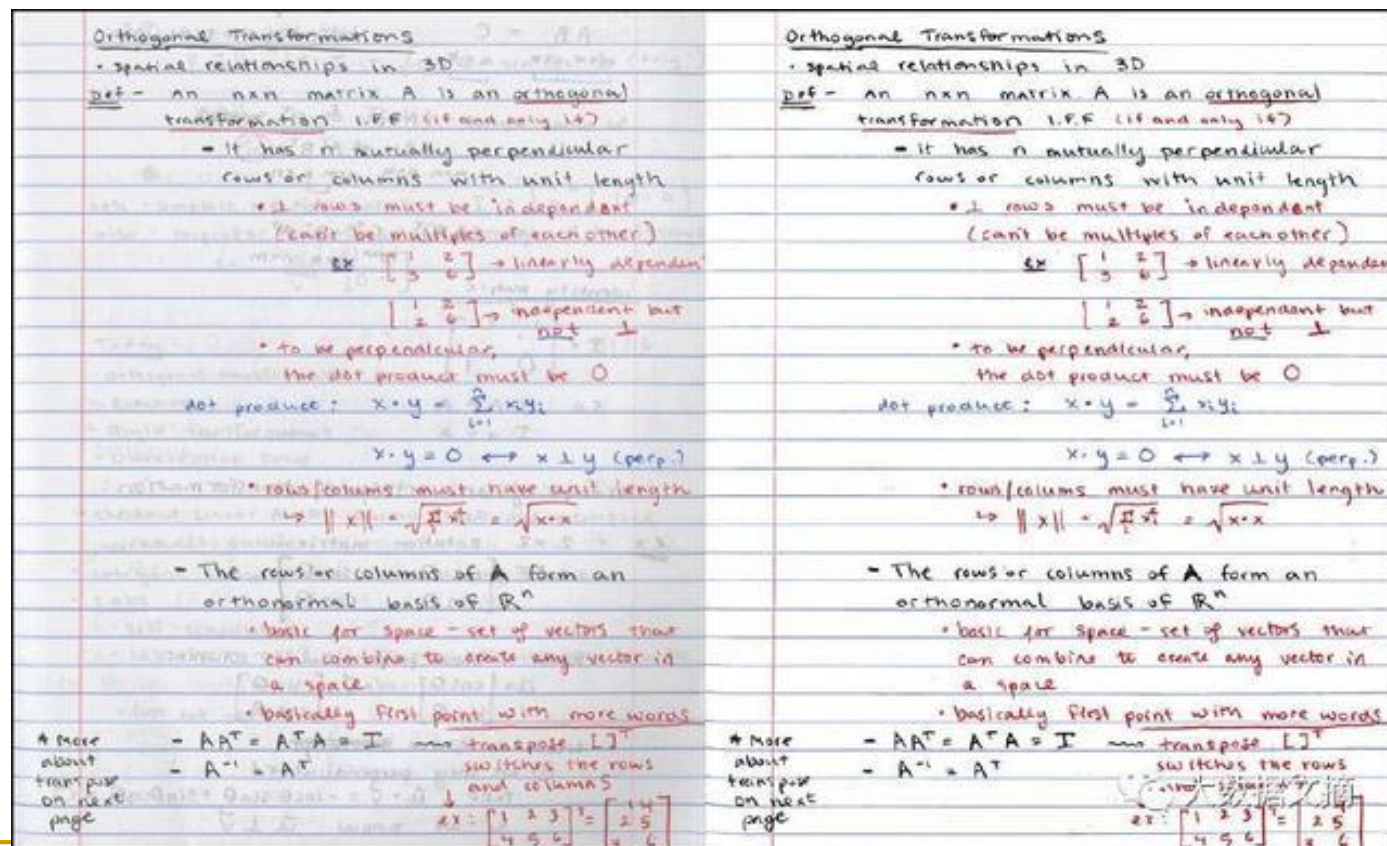 Orthogonal Transformations
• spatial relationships in 3D
Def - An nxn matrix A is an orthogonal
transformation I.F.F (if and only if)
- it has n mutually perpendicular
rows or columns with unit length
• ⊥ rows must be independent
(can't be multiples of each other)
ex [1 2 3 6] → linearly dependen
[1 2 2 6] → independent but
not ⊥
• to be perpendicular,
the dot product must be 0
dot product: x • y = Σ xiyi
x • y = 0 ↔ x ⊥ y (perp.)
• rows/colums must have unit length
↳ ||x|| = √Σxi² = √x•x
- The rows or columns of A form an
orthonormal basis of ℝⁿ
• basic for space - set of vectors that
can combine to create any vector in
a space
• basically first point with more words
- AAᵀ = AᵀA = I transpose [ ]ᵀ
- A⁻¹ = Aᵀ switches the rows
and columns
* More
about
transpose
on next
page
ex: [1 2 3 4 5 6]ᵀ = [1 4 2 5 3 6]
Orthogonal Transformations
• spatial relationships in 3D
Def - An nxn matrix A is an orthogonal
transformation I.F.F (if and only if)
- it has n mutually perpendicular
rows or columns with unit length
• ⊥ rows must be independent
(can't be multiples of each other)
ex [1 2 3 6] → linearly dependen
[1 2 2 6] → independent but
not ⊥
• to be perpendicular,
the dot product must be 0
dot product: x • y = Σ xiyi
x • y = 0 ↔ x ⊥ y (perp.)
• rows/colums must have unit length
↳ ||x|| = √Σxi² = √x•x
- The rows or columns of A form an
orthonormal basis of ℝⁿ
• basic for space - set of vectors that
can combine to create any vector in
a space
• basically first point with more words
- AAᵀ = AᵀA = I transpose [ ]ᵀ
- A⁻¹ = Aᵀ switches the rows
* More
about
transpose
on next
page
大数据文摘
ex: [1 2 3 4 5 6]ᵀ = [1 4 2 5 3 6]